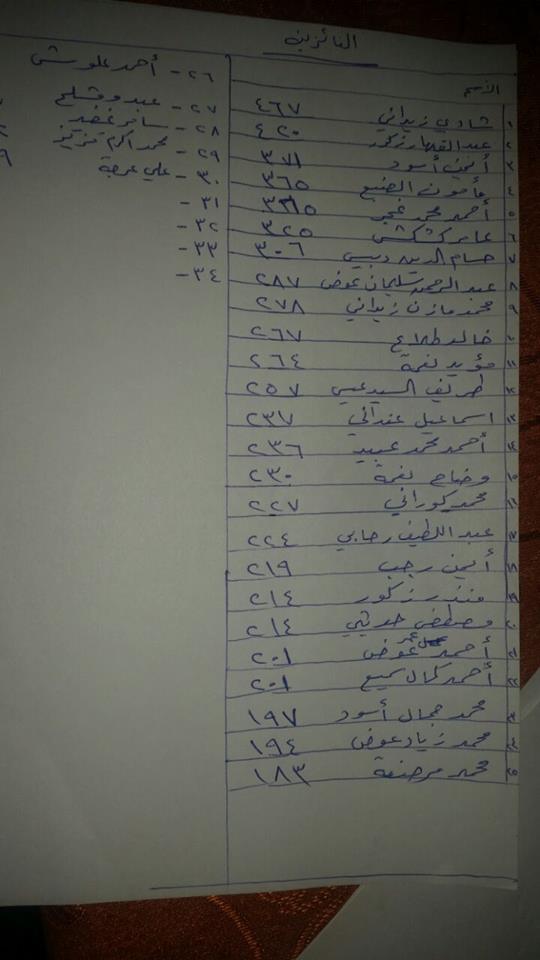 الفائزين
الاسم
١ شادي زيداني ٤٦٧
٢ عبد القهار زكور ٤٢٠
٣ أيمن أسود ٣٧١
٤ مأمون الضبع ٣٦٥
٥ أحمد محمد غجر ٣٣٥
٦ عامر كشكش ٣٢٥
٧ حسام الدين دبيس ٣٠٦
٨ عبد الرحمن سليمان عوض ٢٨٧
٩ محمد مازن زيداني ٢٧٨
١٠ خالد طلاع ٢٦٧
١١ مؤيد نعمة ٢٦٤
١٢ طريف السيد عيسى ٢٥٧
١٣ اسماعيل عنداني ٢٣٧
١٤ أحمد محمد عبيد ٢٣٦
١٥ وضاح نعمة ٢٣٠
١٦ محمد كوراني ٢٢٧
١٧ عبد اللطيف رحابي ٢٢٤
١٨ أيمن رجب ٢١٩
١٩ منذر زكور ٢١٤
٢٠ مصطفى حديثي ٢١٤
٢١ أحمد عمر عوض ٢٠١
٢٢ أحمد كمال سميع ٢٠١
٢٣ محمد جمال أسود ١٩٧
٢٤ محمد زياد عوض ١٩٤
٢٥ محمد مرصنعة ١٨٣
٢٦ - أحمد علوش
٢٧ - عبدو
٢٨ - سامر غضير
٢٩ - محمد اكرم قزيز
٣٠ - علي عرجة
٣١ -
٣٢ -
٣٣ -
٣٤ -